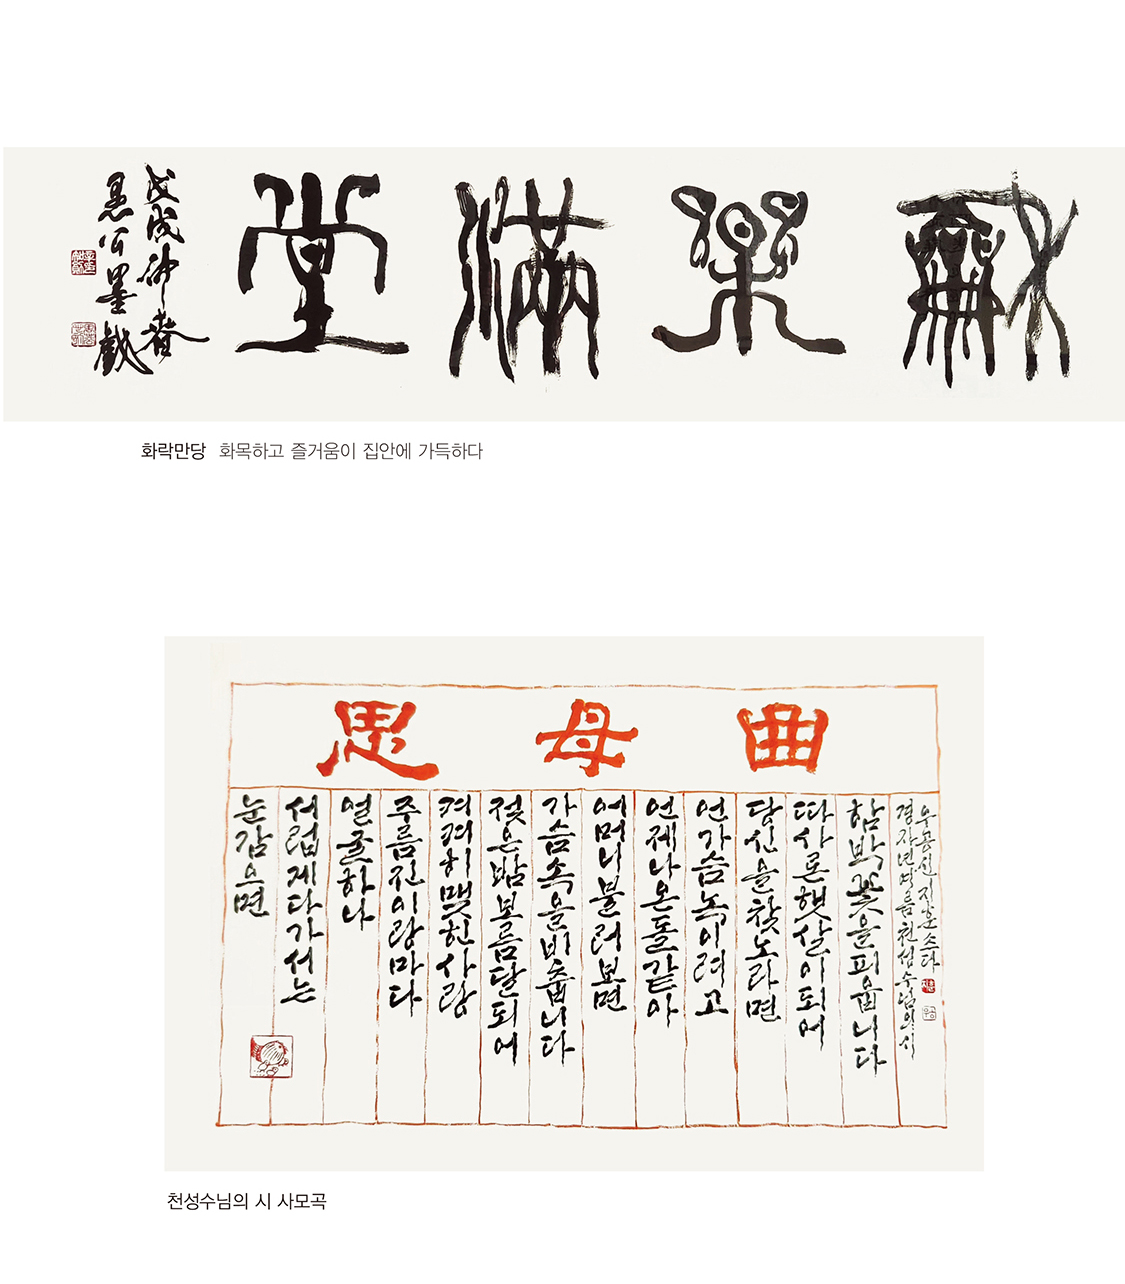 龢樂滿堂
戊戌仲春
愚公墨戱
화락만당 화목하고 즐거움이 집안에 가득하다
思母曲
눈감으면
서럽게다가서는
얼굴하나
주름진이랑마다
켜켜히맺힌사랑
젖은밤보름달되어
가슴속을비춥니다
어머니불러보면
언제나온돌같아
언가슴녹이려고
당신을찾노라면
따사론햇살이되어
함박꽃을피웁니다
경자년여름천성수님의시
우공신지훈쓰다
천성수님의 시 사모곡